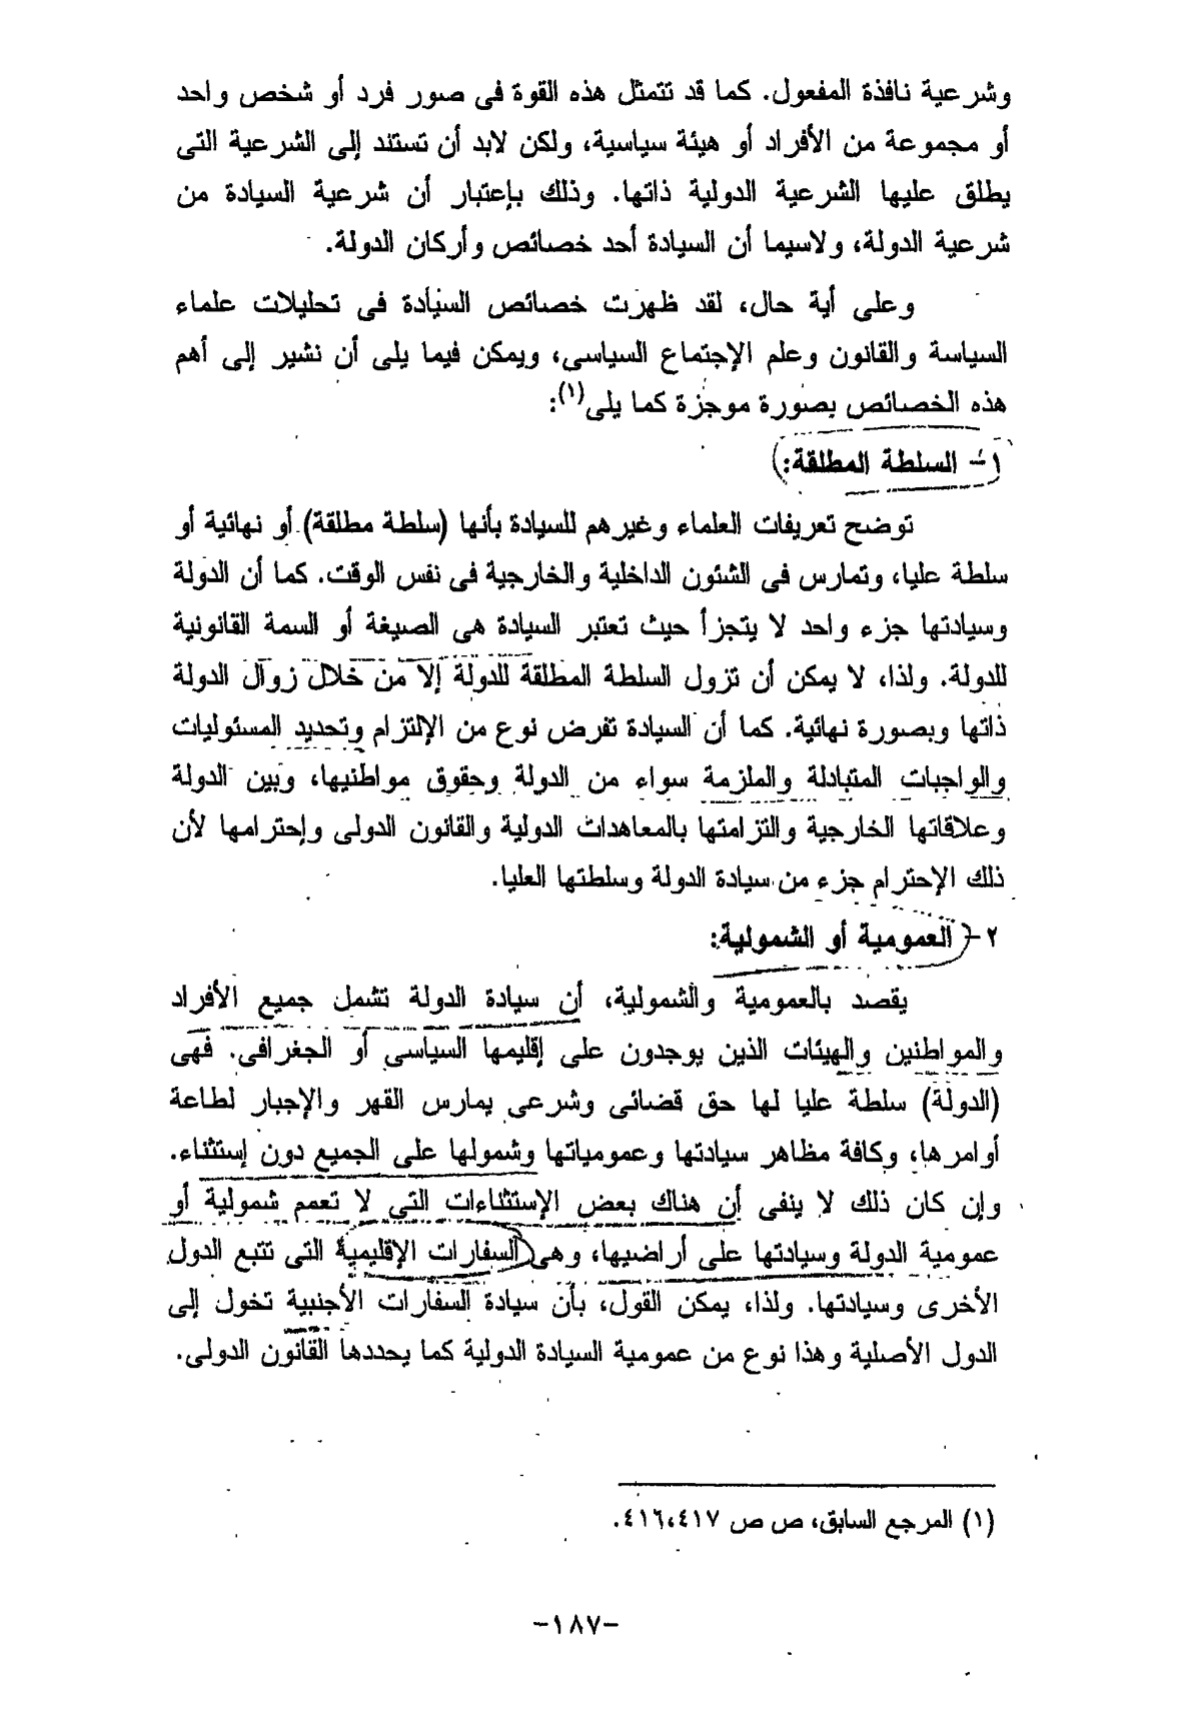 وشرعية نافذة المفعول. كما قد تتمثل هذه القوة فى صور فرد أو شخص واحد
أو مجموعة من الأفراد أو هيئة سياسية، ولكن لابد أن تستند إلى الشرعية التى
يطلق عليها الشرعية الدولية ذاتها. وذلك بإعتبار أن شرعية السيادة من
شرعية الدولة، ولاسيما أن السيادة أحد خصائص وأركان الدولة.
وعلى أية حال، لقد ظهرت خصائص السيادة فى تحليلات علماء
السياسة والقانون وعلم الإجتماع السياسى، ويمكن فيما يلى أن نشير إلى أهم
هذه الخصائص بصورة موجزة كما يلى(١):
١- السلطة المطلقة:
توضح تعريفات العلماء وغيرهم للسيادة بأنها (سلطة مطلقة) أو نهائية أو
سلطة عليا، وتمارس فى الشئون الداخلية والخارجية فى نفس الوقت. كما أن الدولة
وسيادتها جزء واحد لا يتجزأ حيث تعتبر السيادة هى الصيغة أو السمة القانونية
للدولة. ولذا، لا يمكن أن تزول السلطة المطلقة للدولة إلا من خلال زوال الدولة
ذاتها وبصورة نهائية. كما أن السيادة تفرض نوع من الإلتزام وتحديد المسئوليات
والواجبات المتبادلة والملزمة سواء من الدولة وحقوق مواطنيها، وبين الدولة
وعلاقاتها الخارجية والتزامتها بالمعاهدات الدولية والقانون الدولى وإحترامها لأن
ذلك الإحترام جزء من سيادة الدولة وسلطتها العليا.
٢- العمومية أو الشمولية:
يقصد بالعمومية والشمولية، أن سيادة الدولة تشمل جميع الأفراد
والمواطنين والهيئات الذين يوجدون على إقليمها السياسى أو الجغرافى. فهى
(الدولة) سلطة عليا لها حق قضائى وشرعى يمارس القهر والإجبار لطاعة
أوامرها، وكافة مظاهر سيادتها وعمومياتها وشمولها على الجميع دون إستثناء.
وإن كان ذلك لا ينفى أن هناك بعض الإستثناءات التى لا تعمم شمولية أو
عمومية الدولة وسيادتها على أراضيها، وهى السفارات الإقليمية التى تتبع الدول
الأخرى وسيادتها. ولذا، يمكن القول، بأن سيادة السفارات الأجنبية تخول إلى
الدول الأصلية وهذا نوع من عمومية السيادة الدولية كما يحددها القانون الدولى.
(١) المرجع السابق، ص ص ٤١٦،٤١٧.
-١٨٧-